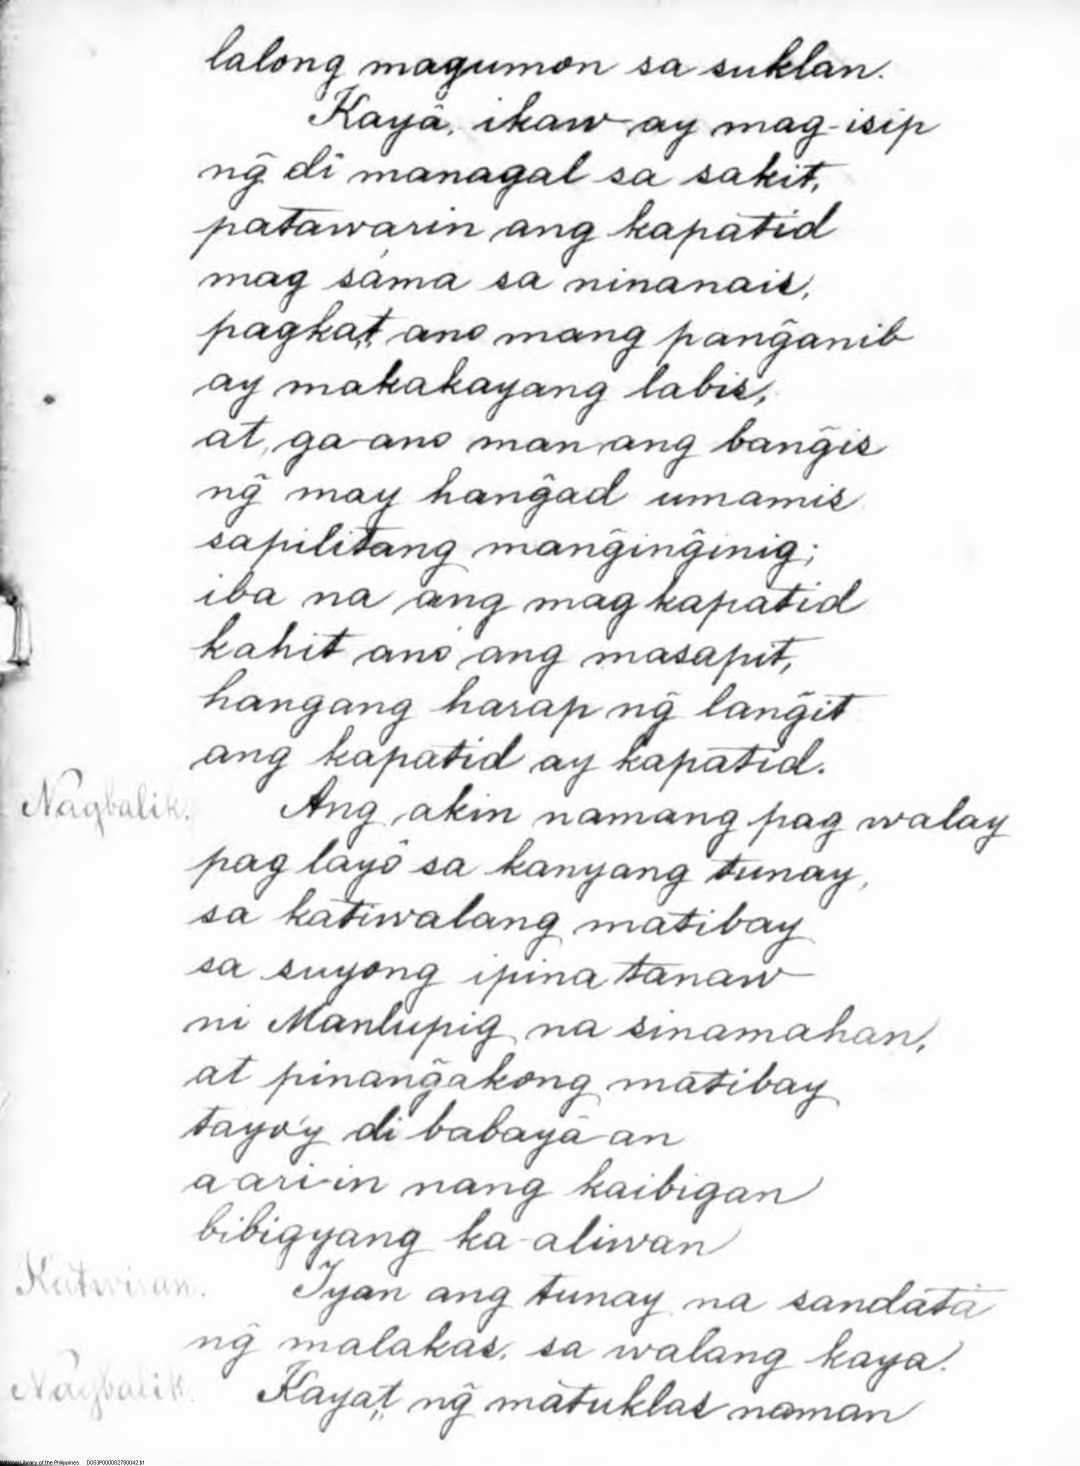 lalong magumon sa suklan.
Kayâ, ikaw ay mag-isip
ng̃ dî managal sa sakit,
patawarin ang kapatid
mag sáma sa ninanais,
pagka,t, ano mang pang̃anib
ay makakayang labis,
at, ga-ano man ang bang̃is
ng̃ may hang̃ad umamis
sapilitang mang̃ing̃inig;
iba na ang mag kapatid
kahit anó ang masapit,
hangang harap ng̃ lang̃it
ang kapatid ay kapatid.
Nagbalik. Ang akin namang pag walay
pag layô sa kanyang tunay,
sa katiwalang matibay
sa suyong ipina tanaw
ni Manlupig na sinamahan,
at pinang̃akong matibay
tayo'y di babayâ-an
a-ari-in nang kaibigan
bibigyang ka-aliwan
Katwiran. Iyan ang tunay na sandatà
ng̃ malakas, sa walang kaya.
Nagbalik. Kaya,t, ng̃ matuklas naman
National Library of the Philippines D053P00008278004Z.tif